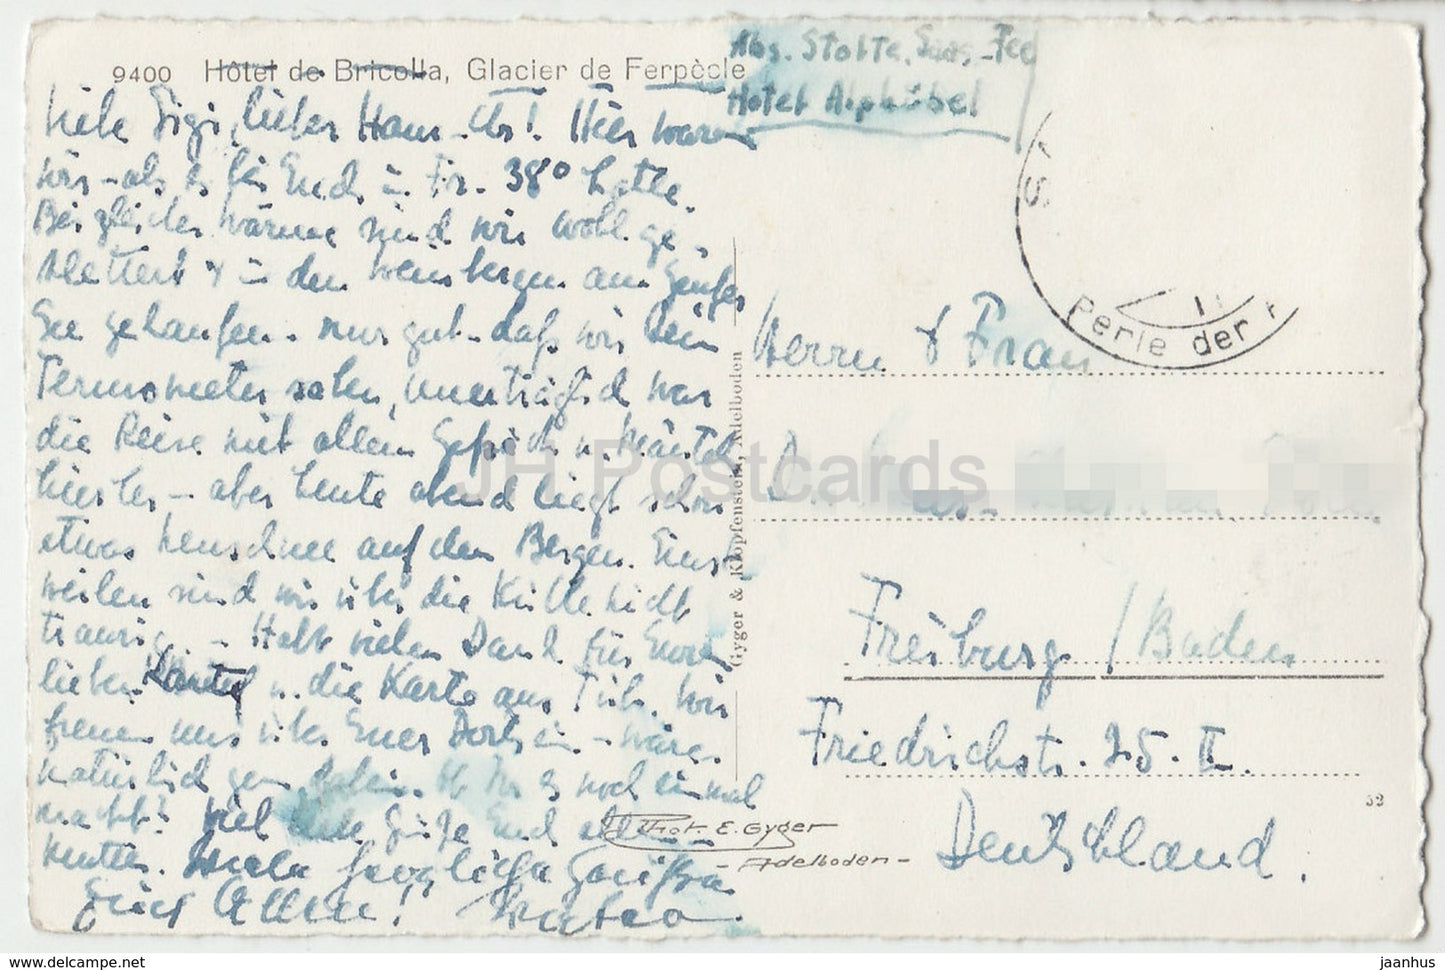 9400 Hôtel de Bricolla, Glacier de Ferpècle
Abs. Stolte, Saas-Fee
Hotel Alphübel
Liebe Sigi, lieber Hans-Urs! Hier waren
wir - als es bei Euch in Fr. 38° hatte.
Bei gleicher Wärme sind wir wohl ge-
klettert & in den Weinbergen am Genfer
See gelaufen - nur gut - daß wir kein
Termometer sahen, unerträglich war
die Reise mit allem Gepäck u. Mäntel
hierher - aber heute abend liegt schon
etwas Neuschnee auf den Bergen. Einst-
weilen sind wir über die Kühle nicht
traurig. - Habt vielen Dank für Euren
lieben u. die Karte aus Tüb. Wir
freuen uns über Euer Dortsein - wären
natürlich gern dabei. noch einmal
macht! Viel Grüße Euch
Mutter. Viele
Euch Allen!
Herrn & Frau
D.
Freiburg / Baden
Friedrichstr. 25. II.
Deutschland.
Perle der
Gyger & Klopfenstein, Adelboden
Phot. E. Gyger
- Adelboden -
32
JH Postcards
https://www.hippostcard.com
jaanhus